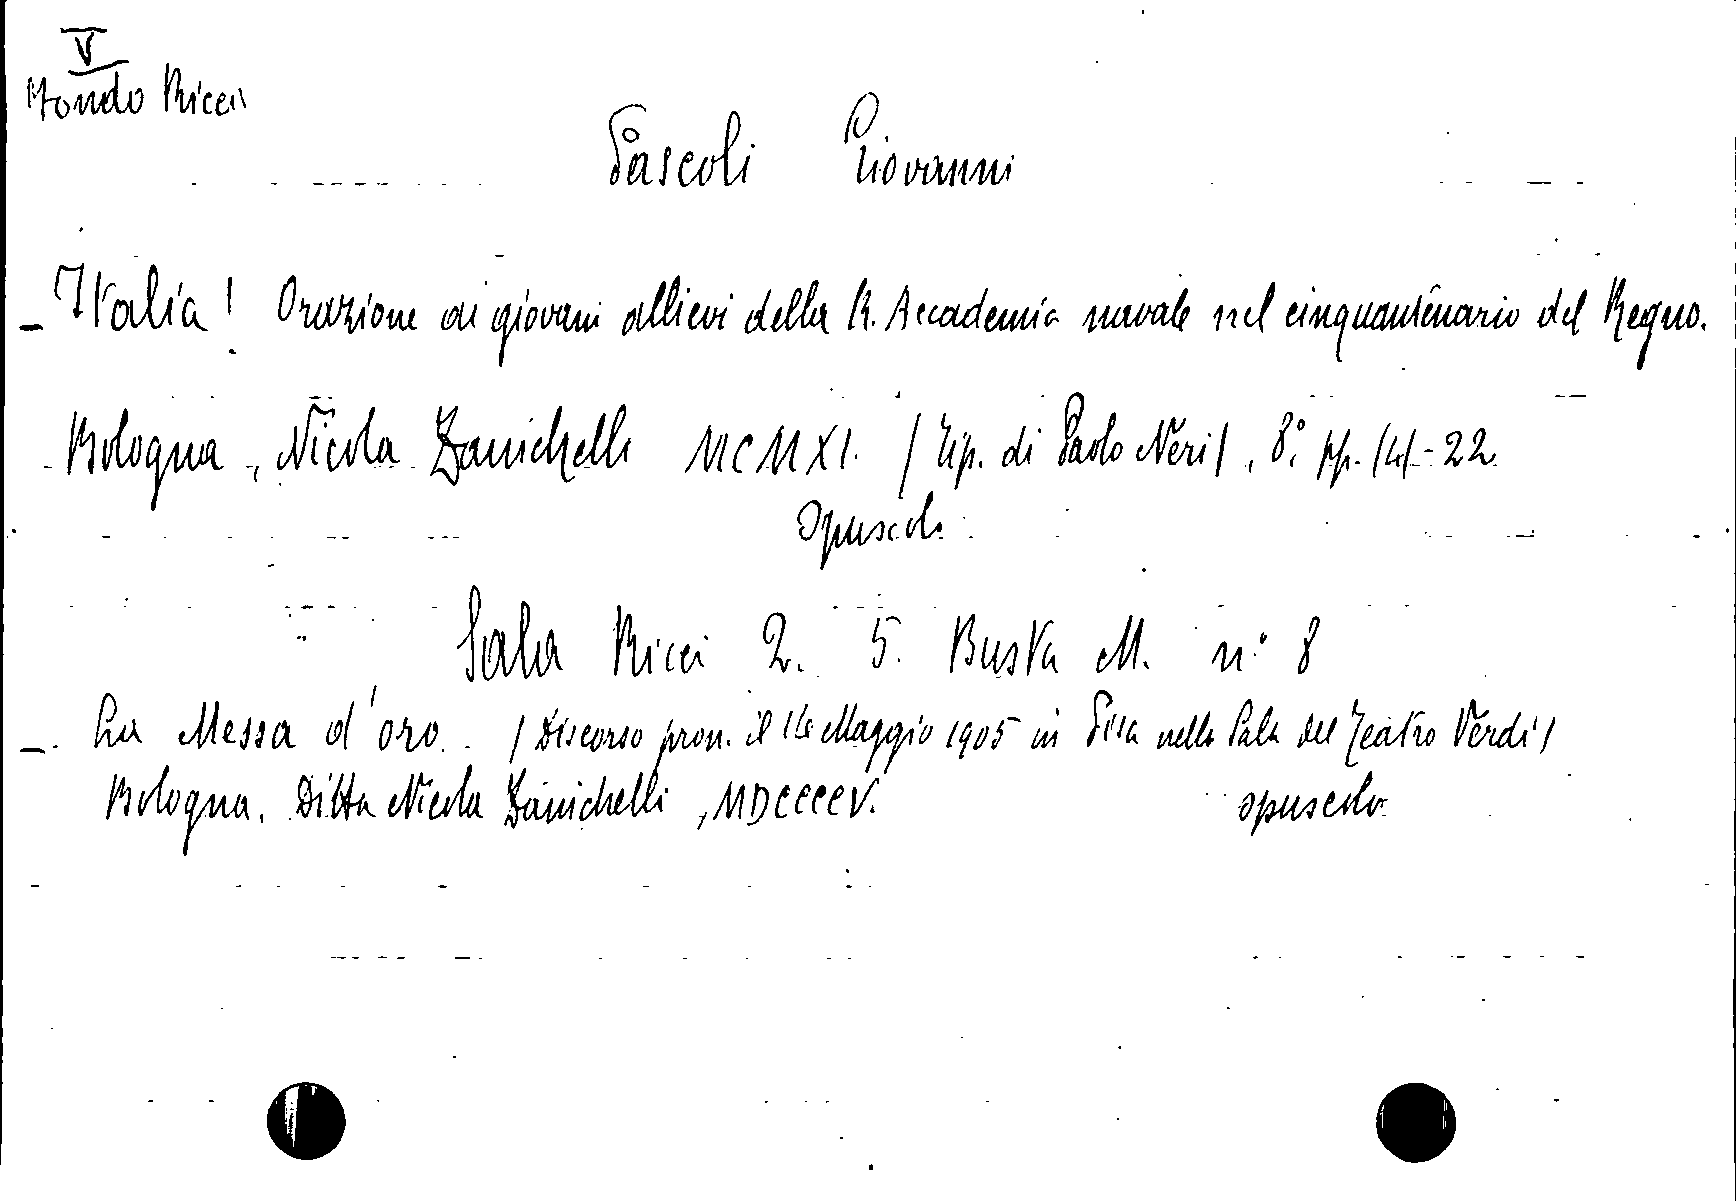 V
Fondo Ricci
Pascoli Giovanni
- Italia! Orazione ai giovani allievi della R. Accademia navale nel cinquantenario del Regno.
Bologna, Nicola Zanichelli MCMXI. (Tip. di Paolo Neri), 8° pp. (4)-22
Opuscolo
Sala Ricci 2. 5. Busta M. n° 8
- La Messa d'oro. (Discorso pron. il 14 Maggio 1905 in Pisa nella Sala del Teatro Verdi)
Bologna. Ditta Nicola Zanichelli, MDCCCCV. opuscolo